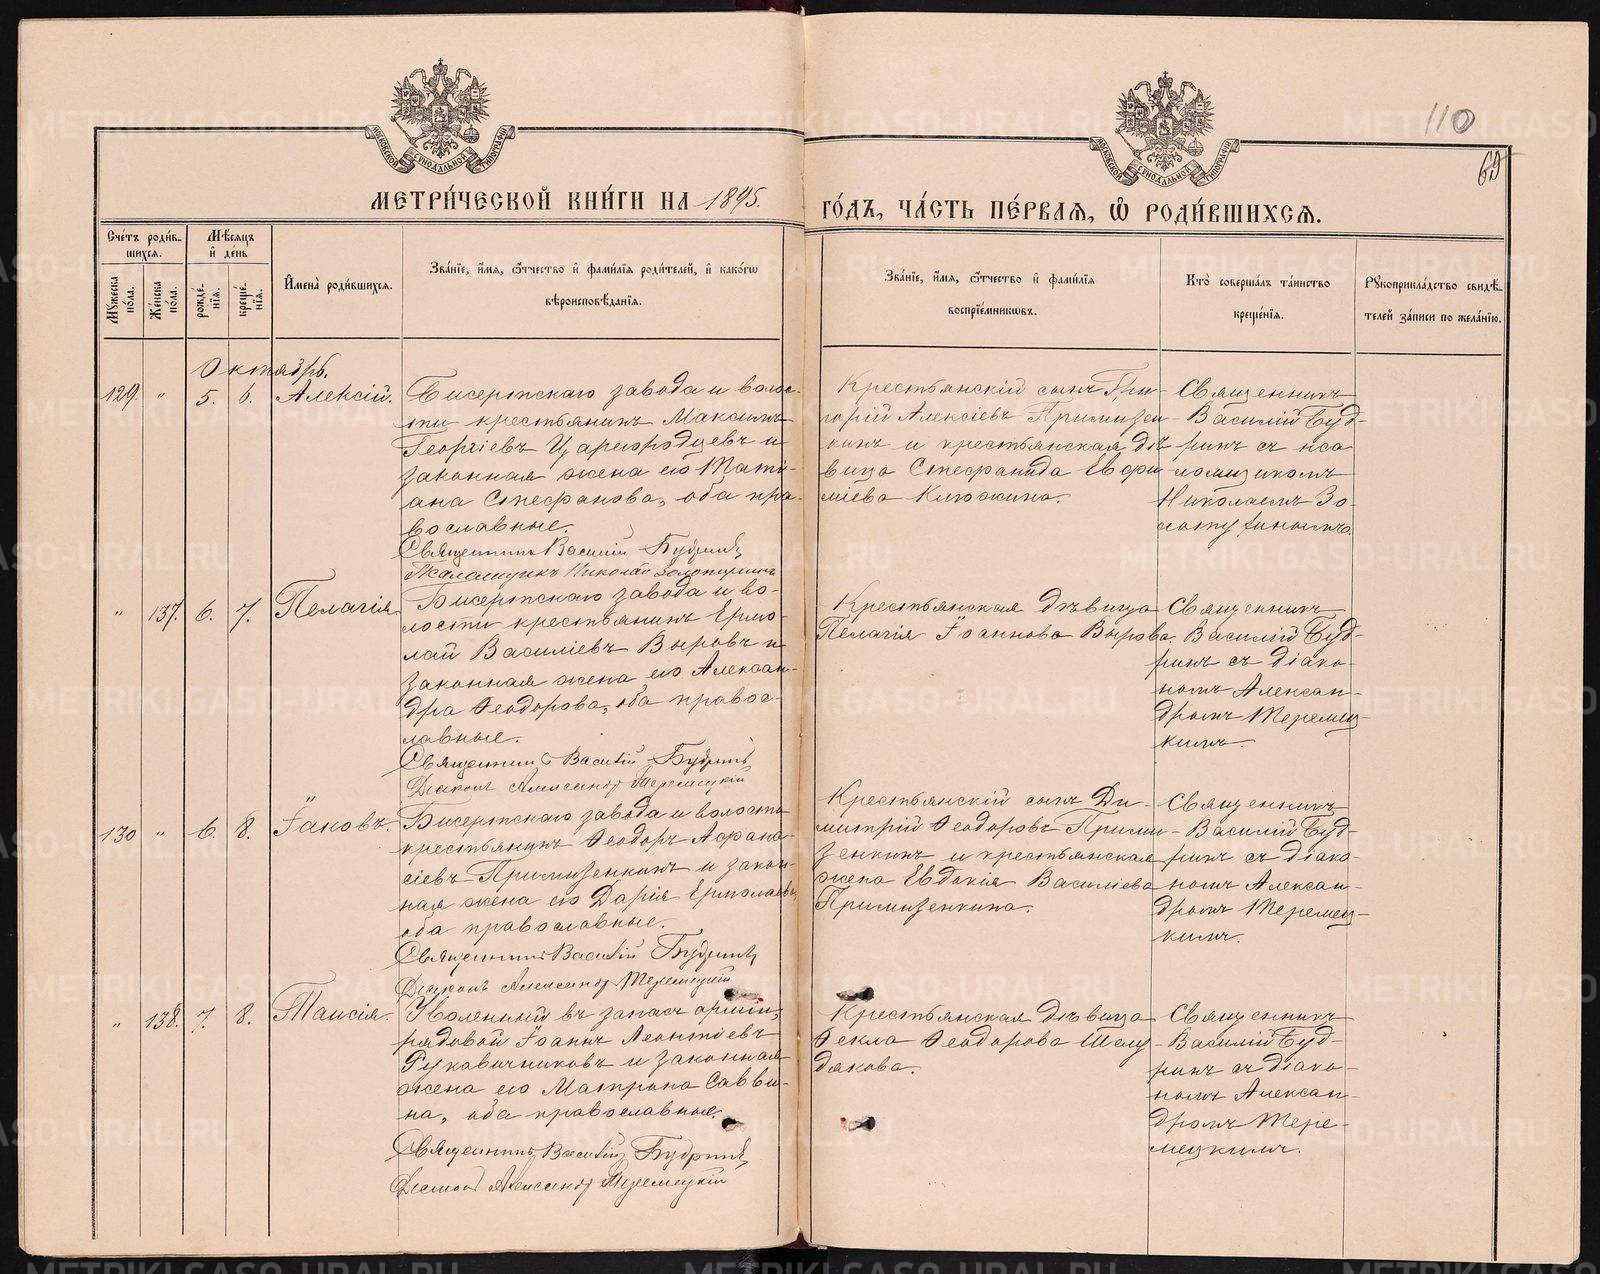 110
69
МЕТРИ́ЧЕСКОЙ КНИ́ГИ НА 1895.
ГО́ДЪ, ЧА́СТЬ ПЕ́РВАЯ, Ѡ҆ РОДИ́ВШИХСЯ.
Сче́тъ роди́в-
шихся.
Мѣ́сяцъ
и҆ де́нь
Мꙋ́жеска по́ла.
Же́нска по́ла.
рожде́-
нїя.
креще́-
нїя.
И҆мена̀ роди́вшихся.
Зва́нїе, и҆́мя, ѻ҆́тчество и҆ фами́лїя роди́телей, и҆ како́гѡ
вѣроисповѣ́данїя.
Зва́нїе, и҆́мя, ѻ҆́тчество и҆ фами́лїя
воспрїе́мникѡвъ.
Кто̀ соверша́лъ та́инство
креще́нїя.
Рꙋкоприкла́дство свидѣ́-
телей за́писи по жела́нїю.
Октябрь.
129. " 5. 6. Алексій.
Бисертскаго завода и волос-
ти крестьянинъ Максимъ
Георгіевъ Царегородцевъ и
законная жена его Тати-
ана Стефанова, оба пра-
вославные.
Священникъ Василій Будринъ
Псаломщикъ Николай Золотухинъ
Крестьянскій сынъ Гри-
горій Алексіевъ Примизен
кинъ и крестьянская дѣ
вица Стефанида Евфи
міева Клюкина.
Священникъ
Василій Буд-
ринъ съ пса
ломщикомъ
Николаемъ Зо-
лотухинымъ.
" 137. 6. 7. Пелагія
Бисертскаго завода и во-
лости крестьянинъ Ермо-
лай Василіевъ Выровъ и
законная жена его Алексан-
дра Ѳеодорова, оба правос-
лавные.
Священникъ Василій Будринъ
Діаконъ Александръ Теремецкій
Крестьянская дѣвица
Пелагія Іоаннова Вырова.
Священникъ
Василій Буд-
ринъ съ діако-
номъ Алексан-
дромъ Теремец-
кимъ.
130 " 6. 8. Іаковъ.
Бисертскаго завода и волости
крестьянинъ Ѳеодоръ Афана-
сіевъ Примизенкинъ и закон-
ная жена его Дарія Ермолаева,
оба православные.
Священникъ Василій Будринъ
Діаконъ Александръ Теремецкій
Крестьянскій сынъ Ди-
митрій Ѳеодоровъ Прими-
зенкинъ и крестьянская
жена Евдокія Василіева
Примизенкина.
Священникъ
Василій Буд-
ринъ съ діако-
номъ Алексан-
дромъ Теремец-
кимъ.
" 138. 7. 8. Таисія.
Уволенный въ запасъ арміи,
рядовой Іоаннъ Леонтіевъ
Рукавичниковъ и законная
жена его Матрона Савви-
на, оба православные.
Священникъ Василій Будринъ
Діаконъ Александръ Теремецкій
Крестьянская дѣвица
Ѳекла Ѳеодорова Шелу-
дякова.
Священникъ
Василій Буд-
ринъ съ діако-
номъ Алексан-
дромъ Тере-
мецкимъ.
METRIKI.GASO-URAL.RU